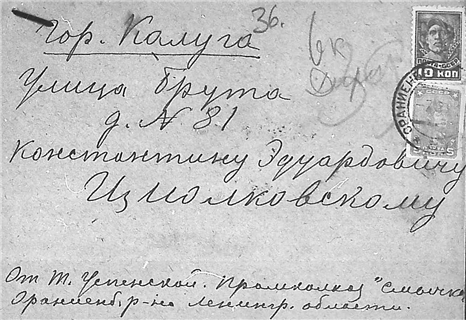 36.
Гор. Калуга
Улица Брута
д. N 81
Константину Эдуардовичу
Циолковскому
От Т. Успенской. Промколхоз "Смычка"
Ораниенб. р-на Ленингр. области.
10 КОП
ОРАНИЕНБ